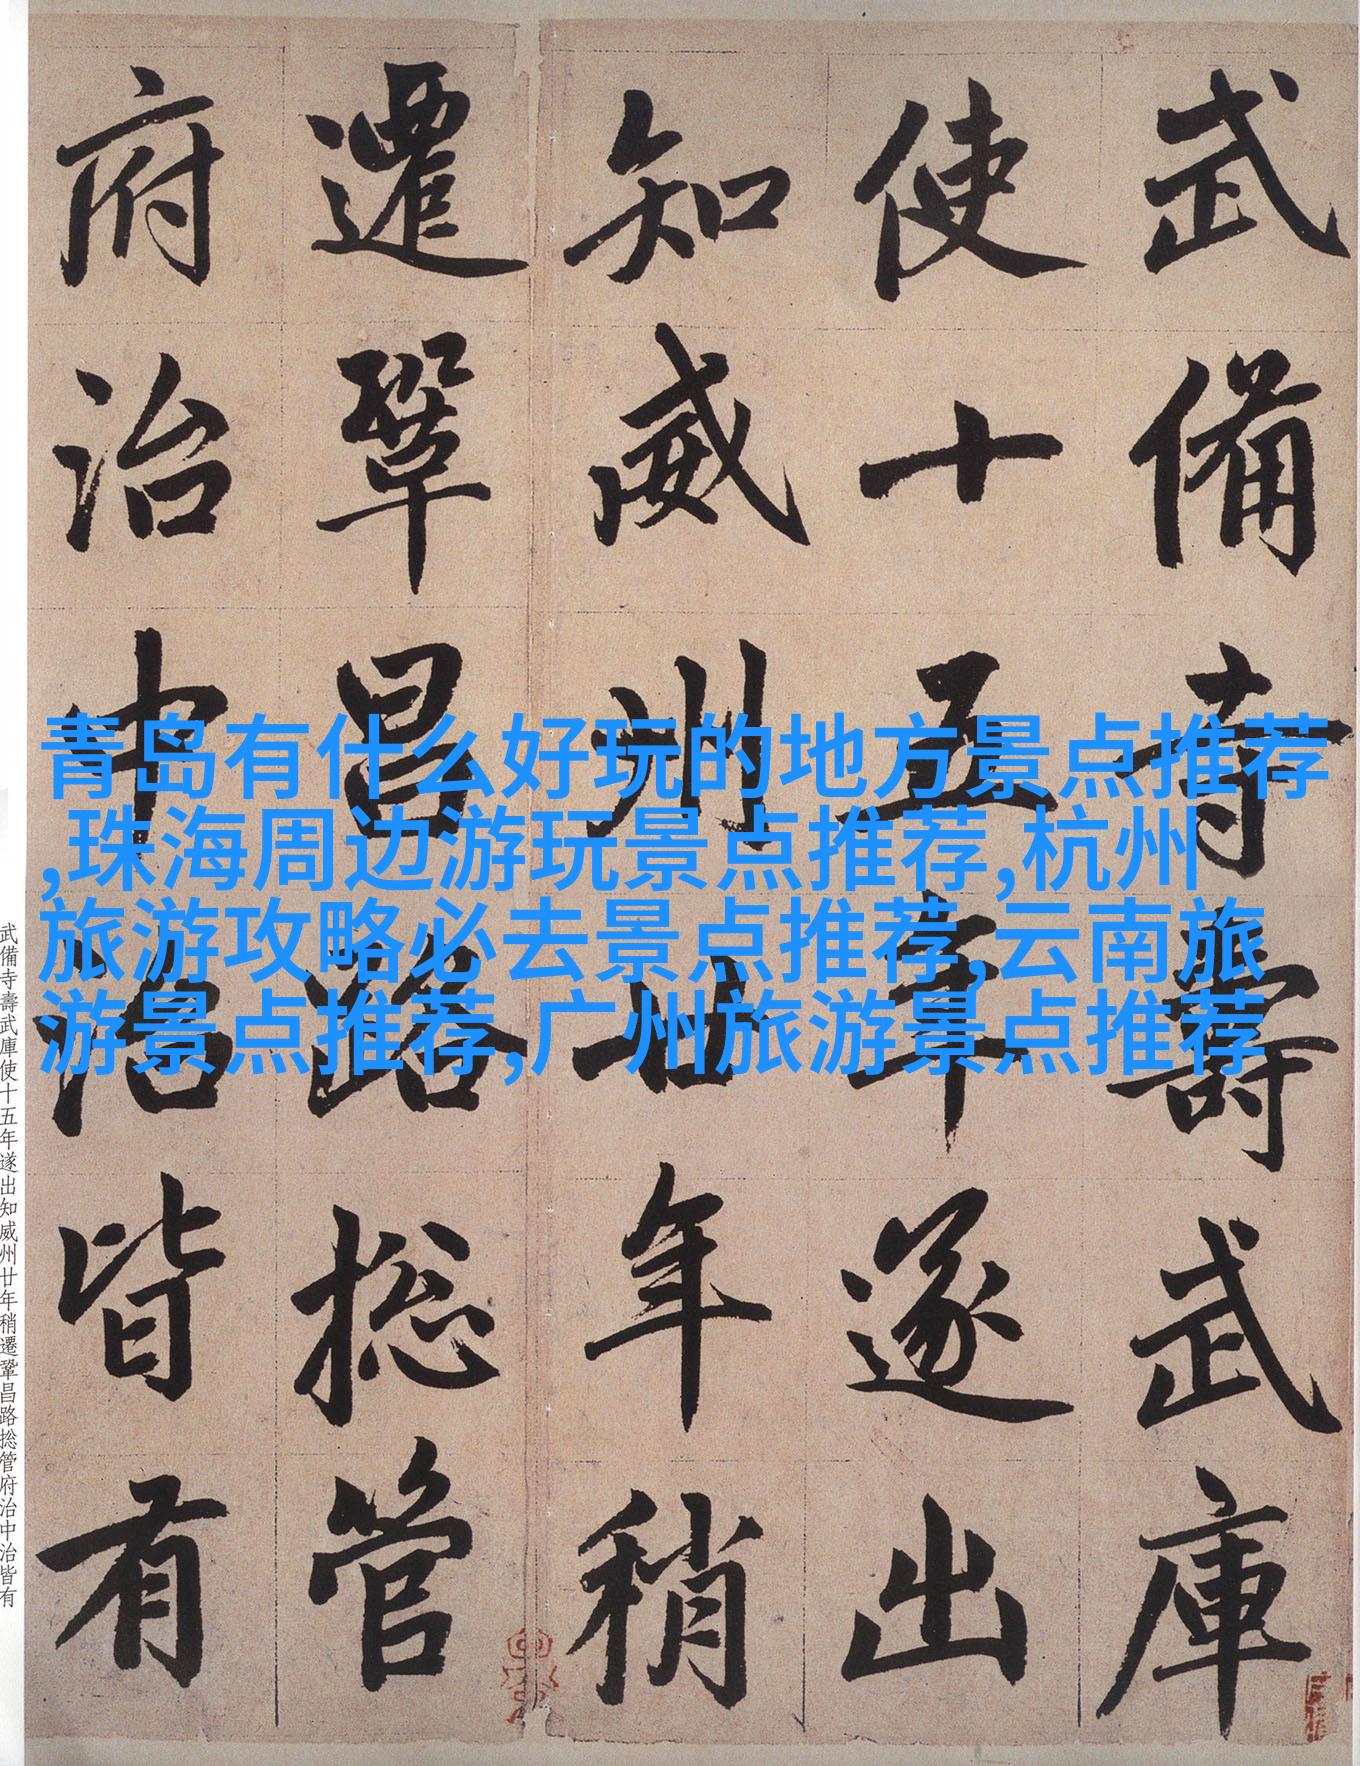 武備寺壽武庫
使十五年遂出
知威州廿年稍
遷鞏昌路捴管
府治中治皆有
青岛有什么好玩的地方景点推荐
,珠海周边游玩景点推荐,杭州
旅游攻略必去景点推荐,云南旅
游景点推荐,广州旅游景点推荐
武備寺壽武庫使十五年遂出知威州廿年稍遷鞏昌路捴管府治中治皆有